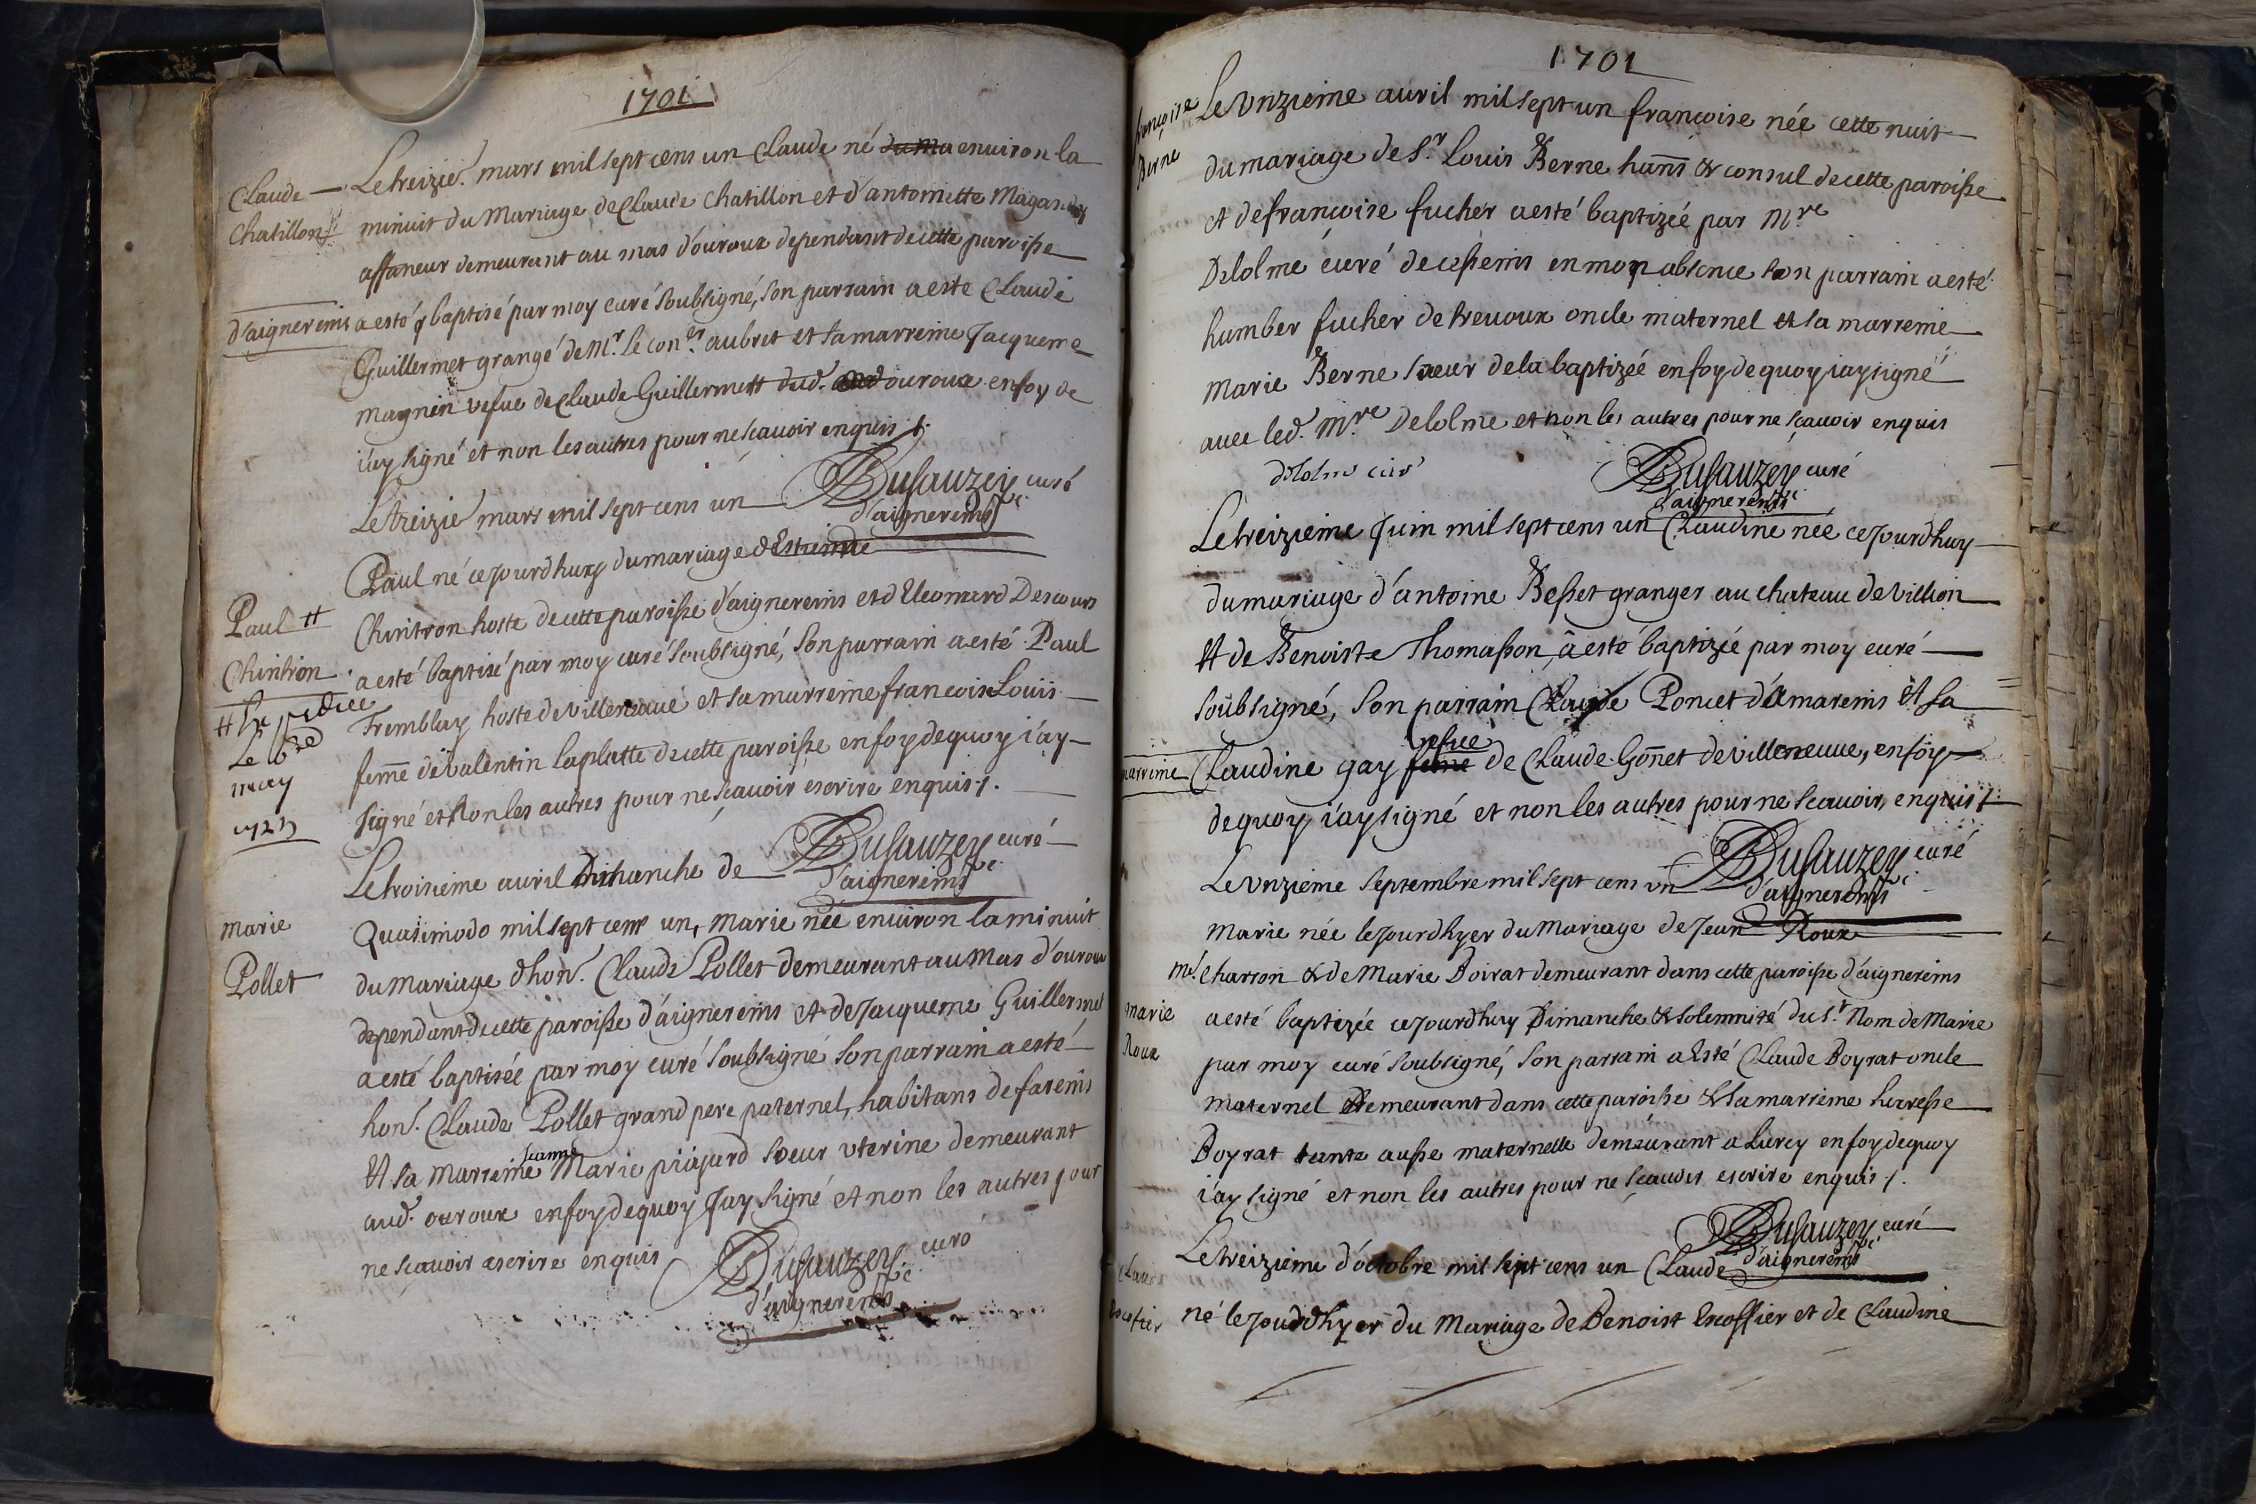 1701
Claude
Chatillon
Le treizie. mars mil sept cens un Claude né enuiron la
minuit du Mariage de Claude Chatillon et d'antoinette
affaneur demeurant au mas d'ouroux dependant de cette paroisse
d'aignereins a esté baptisé par moy curé soubsigné, son parrain a este Claude
Guillermet grangé de Mr. le coner. aubret et sa marreine Jacqueme
magnin vefue de Claude Guillermett dud. ouroux en foy de
i'ay signé et non les autres pour ne scauoir enquis /.
Dusauzey curé
d'aignereins
Le treizie mars mil sept cens un
Paul né ce jourdhuy du mariage d'Estienne
Paul #
Chintron
Chintron hoste de cette paroisse d'aignereins et d'Eleonard Descours
a esté baptisé par moy curé soubsigné, son parrain a esté Paul
Tremblay hoste de villeneuue et sa marreine francoise Louis
femē de valentin laplatte de cette paroisse en foy de quoy i'ay
signé et non les autres pour ne scauoir escrire enquis /.
# Expediee
Le
may
Dusauzey curé
d'aignereins
Le troisieme auril Dimanche de
marie
Pollet
Quasimodo mil sept cens un, marie née enuiron la minuit
du Mariage d'hon. Claude Pollet demeurant au Mas d'ouroux
dependant de cette paroisse d'aignereins et de Jacqueme Guillermet
a esté baptisée par moy curé soubsigné son parrain a esté
hon. Claude Pollet grand pere paternel, habitans de fareins
et sa marreine Jeanne Marie piajard sœur vterine demeurant
aud. ouroux en foy de quoy J'ay signé et non les autres pour
ne scauoir escrire enquis
Dusauzey curé
d'aignereins
1701
francoise
Berne
Le vnzieme auril mil sept un francoise née cette nuit
du mariage de Sr. Louis Berne hans & consul de cette paroisse
et de francoise fucher a esté baptizéé par Mre
Delolme curé de cesseins en mon absence son parrain a esté
humber fucher de treuoux oncle maternel et sa marreine
marie Berne sœur de la baptizéé en foy de quoy i'ay signé
auec led. Mre. Delolme et non les autres pour ne scauoir enquis
delolme curé
Dusauzey curé
d'aignereins
Le treizieme Juin mil sept cens un Claudine née ce jourdhuy
du mariage d'antoine Besset granger au chateau de villion
et de Benoiste Thomasson, a esté baptizéé par moy curé
soubsigné, son parrain Claude Poncet d'Amareins et sa
marreine Claudine gay feme vefue de Claude Gonnet de villeneuue, en foy
de quoy i'ay signé et non les autres pour ne scauoir, enquis /.
Dusauzey curé
d'aignereins
Le vnzieme septembre mil sept cens vn
marie née le jourdhyer du Mariage de Jean Roux
me. charron & de Marie Boirat demeurant dans cette paroisse d'aignereins
marie
Roux
a esté baptizée ce jourdhuy Dimanche & solemnité du St. Nom de Marie
par moy curé soubsigné, son parrain a Esté Claude Boyrat oncle
maternel demeurant dans cette paroisse & sa marreine
Boyrat tante ausse maternelle demeurant a Lurcy en foy de quoy
i'ay signé et non les autres pour ne scauoir escrire enquis /.
Dusauzey curé
d'aignereins
Le treizieme d'octobre mil sept cens un Claude
né le jourdhyer du Mariage de Benoist Escoffier et de Claudine